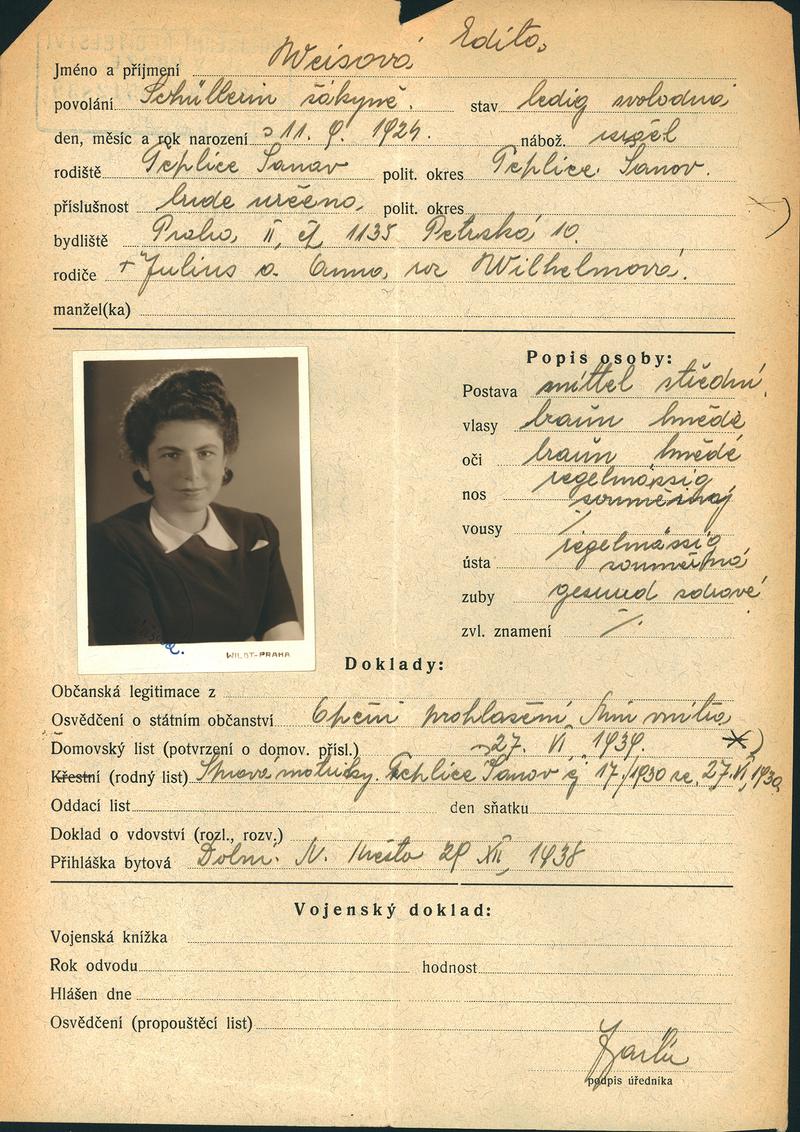 Jméno a příjmení Weisová Edita
povolání Schüllerin žákyně. stav ledig svobodná
den, měsíc a rok narození 11. 9. 1924. nábož.
rodiště Teplice Šanov polit. okres Teplice Šanov.
příslušnost bude určeno polit. okres
bydliště Praha II, čp. 1135 Petrská 10.
rodiče + Julius a Anna, roz Wilhelmová.
manžel(ka)
Popis osoby:
Postava mittel střední
vlasy braun hnědé
oči braun hnědé
nos regelmässig souměrný
vousy /.
ústa regelmässig souměrná
zuby gesund zdravé
zvl. znamení /.
WILDT-PRAHA
Doklady:
Občanská legitimace z
Osvědčení o státním občanství prohlášení, Min vnitra
Domovský list (potvrzení o domov. přísl.) 27. VI. 1939.
Křestní (rodný list) Správa matriky. Teplice Šanov čj 17/1930 ze 27.VI,1930
Oddací list den sňatku
Doklad o vdovství (rozl., rozv.)
Přihláška bytová Dolní. N. Město 29 XII, 1938
Vojenský doklad:
Vojenská knížka
Rok odvodu hodnost
Hlášen dne
Osvědčení (propouštěcí list)
podpis úředníka